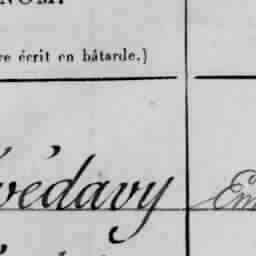 NOM.
re écrit en bâtarde.)
védavy Em